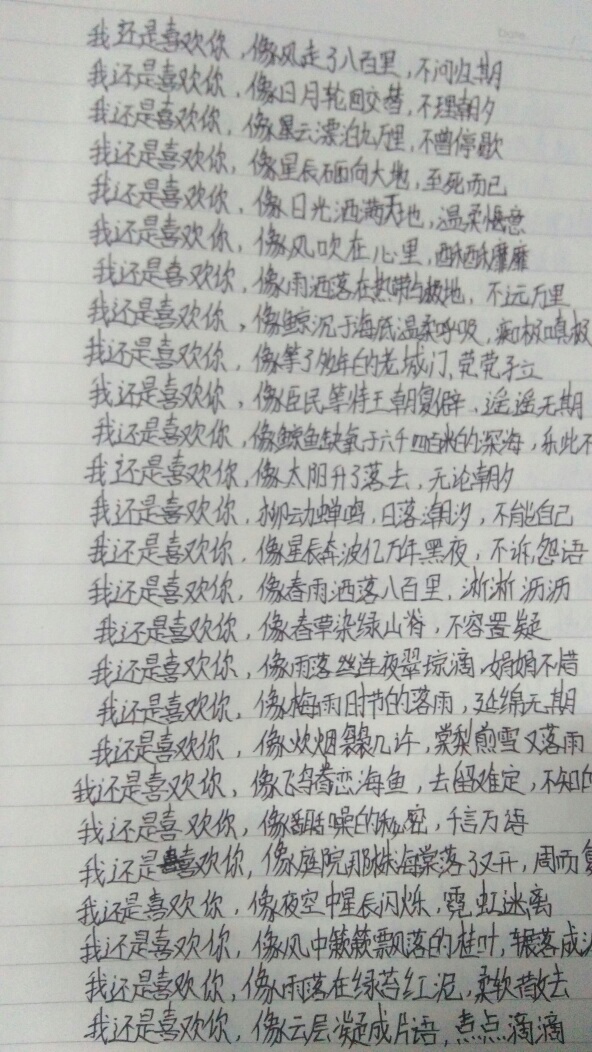 我还是喜欢你，像风走了八百里，不问归期
我还是喜欢你，像日月轮回交替，不理朝夕
我还是喜欢你，像星云漂泊九万里，不曾停歇
我还是喜欢你，像星辰面向大地，至死而已
我还是喜欢你，像日光洒满天地，温柔惬意
我还是喜欢你，像风吹在心里，酥酥靡靡
我还是喜欢你，像雨洒落在热带与极地，不远万里
我还是喜欢你，像鲸沉于海底温柔呼吸，痴极嗔极
我还是喜欢你，像等了多年的老城门，茕茕孑立
我还是喜欢你，像臣民等待王朝复辟，遥遥无期
我还是喜欢你，像鲸鱼缺氧于六千四百米的深海，乐此不
我还是喜欢你，像太阳升了落去，无论朝夕
我还是喜欢你，柳动蝉鸣，日落潮汐，不能自己
我还是喜欢你，像星辰奔波亿万年黑夜，不诉怨语
我还是喜欢你，像春雨洒落八百里，淅淅沥沥
我还是喜欢你，像春草染绿山脊，不容置疑
我还是喜欢你，像雨落丝连夜翠琼滴，娟娟不惜
我还是喜欢你，像梅雨时节的落雨，延绵无期
我还是喜欢你，像炊烟袅袅几许，棠梨煎雪又落雨
我还是喜欢你，像飞鸟眷恋海鱼，去留难定，不知的
我还是喜欢你，像聒噪的秘密，千言万语
我还是喜欢你，像庭院那株海棠落了又开，周而复
我还是喜欢你，像夜空中星辰闪烁，霓虹迷离
我还是喜欢你，像风中簌簌飘落的桂叶，辗落成
我还是喜欢你，像雨落在绿苔红泥，柔软散去
我还是喜欢你，像云层凝成片语，点点滴滴